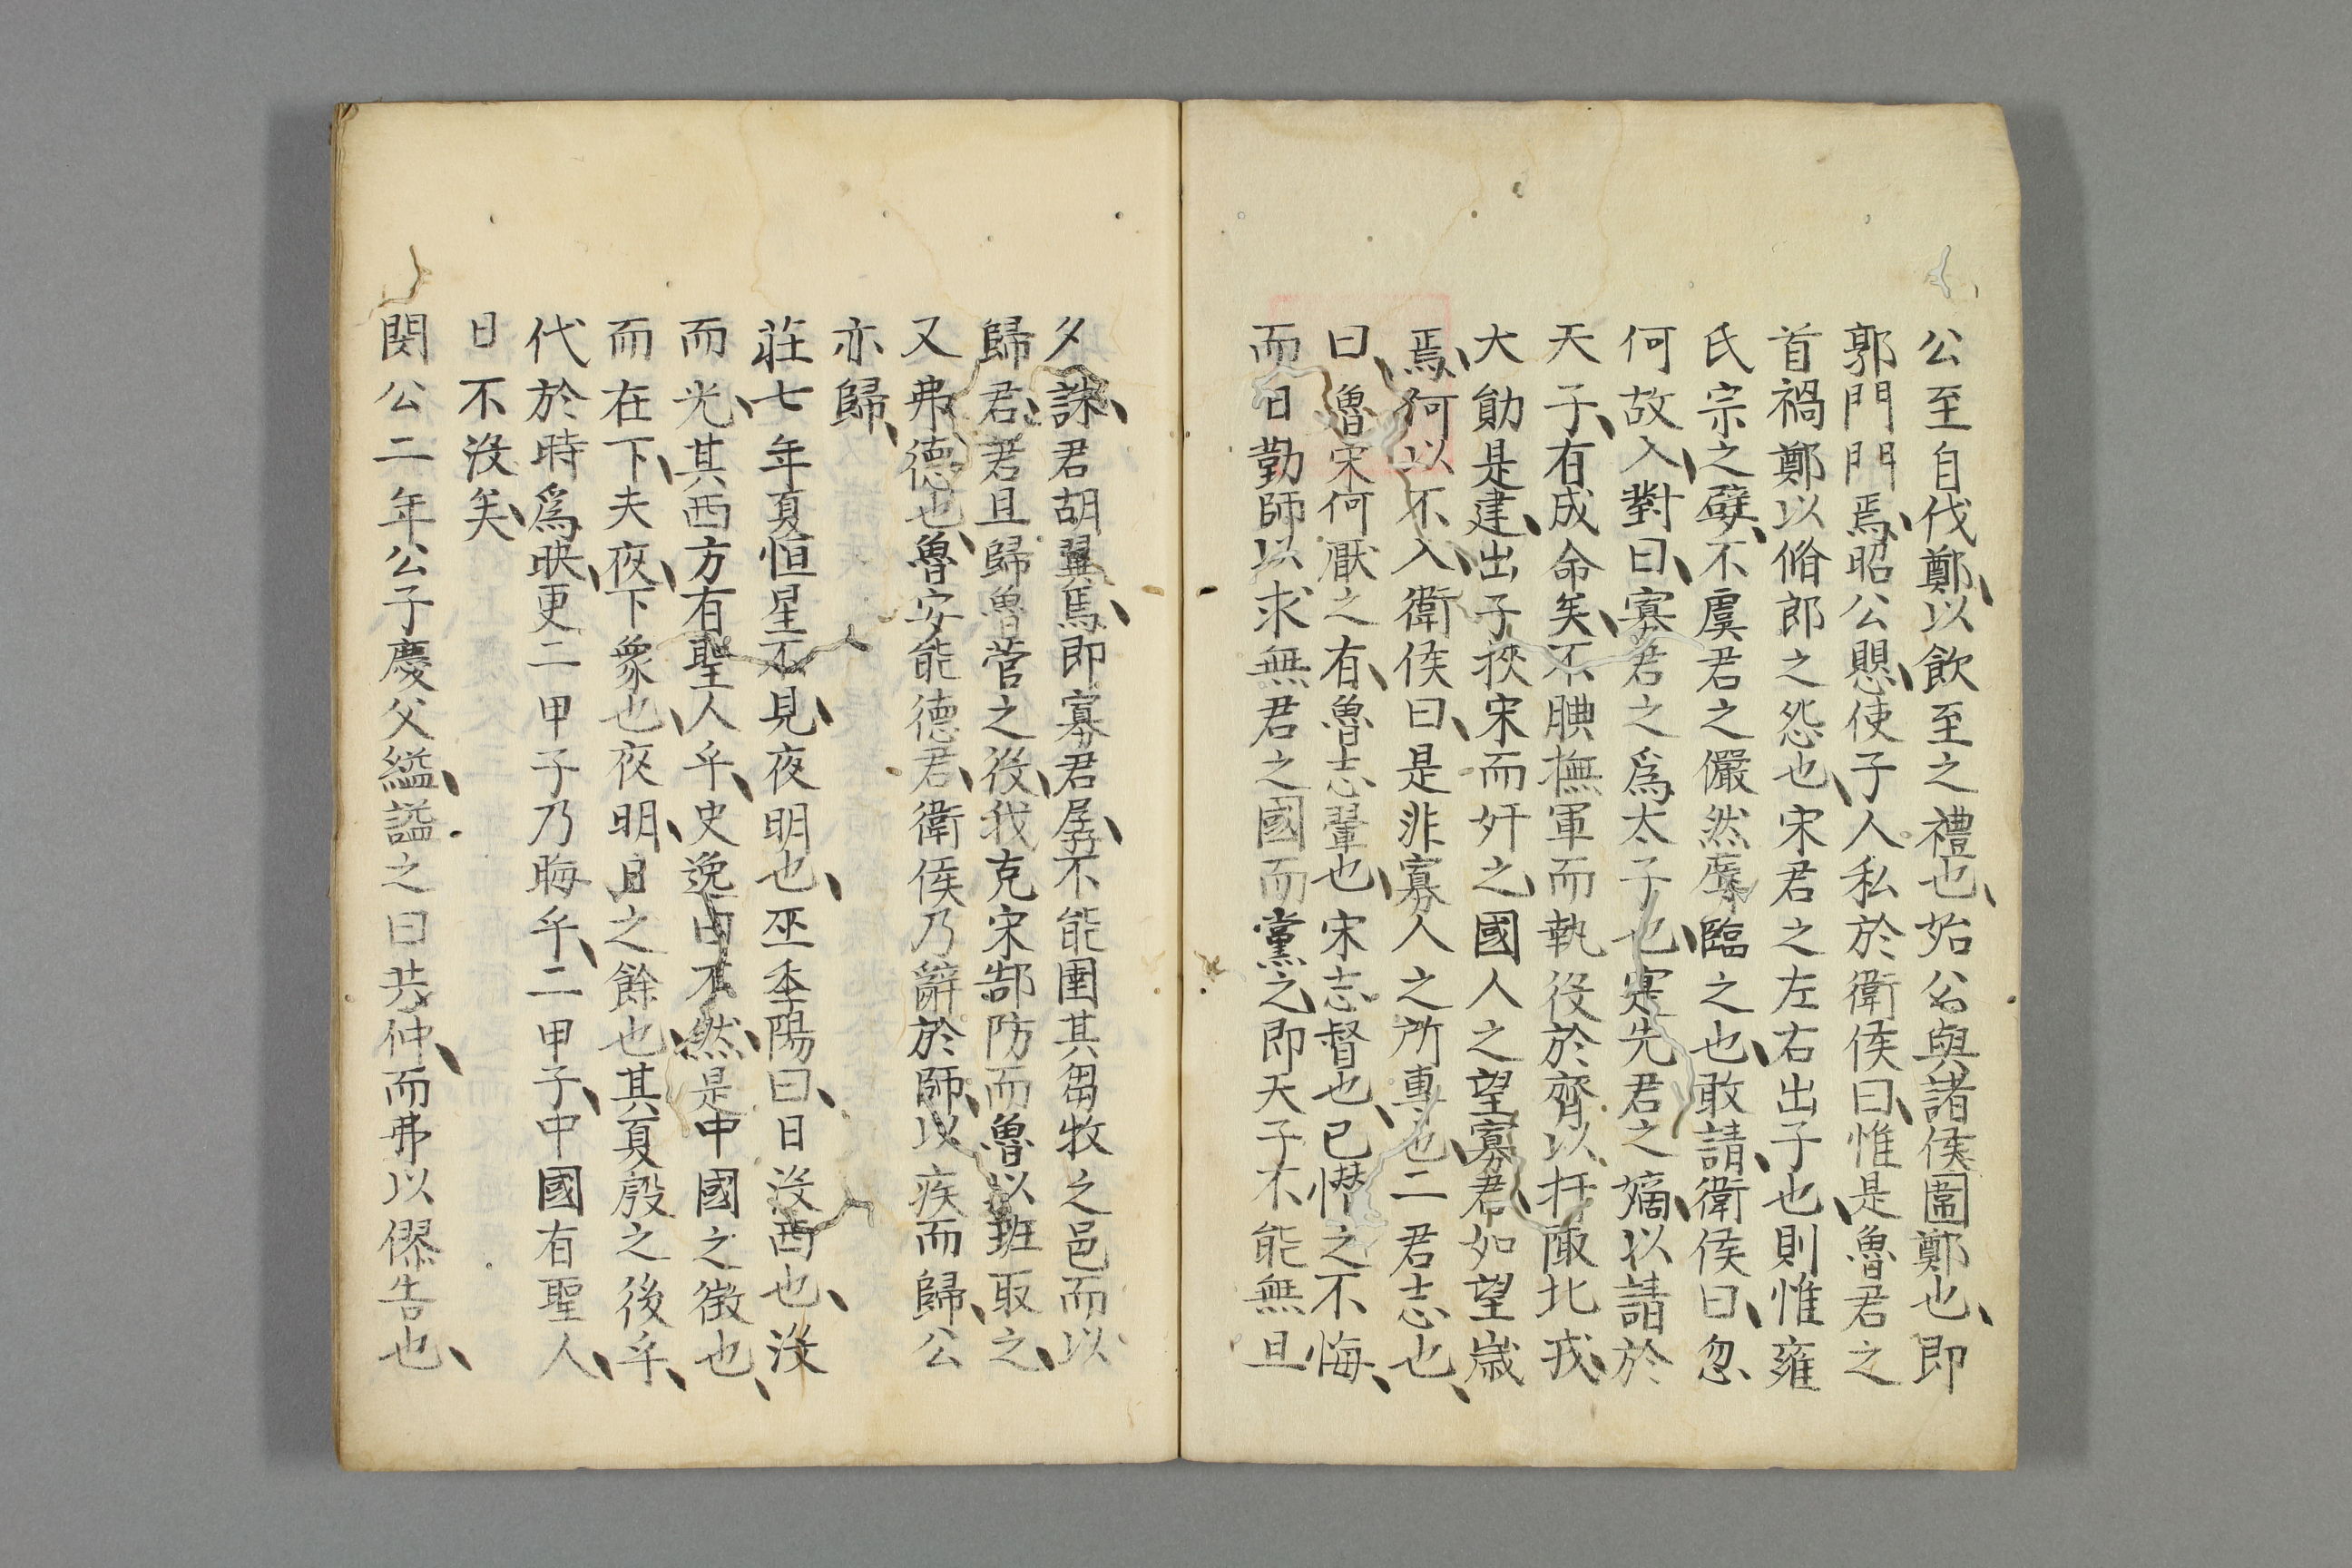 公至自伐鄭以飲至之禮也始公與諸侯圖鄭也即
郭門門焉昭公愳使子人私於衛侯曰惟是魯君之
首禍鄭以脩郎之怨也宋君之左右出子也則惟雍
氏宗之嬖不虞君之儼然辱臨之也敢請衛侯曰忽
何故入對曰寡君之爲太子也寔先君之嫡以請於
天子有成命矣不腆撫軍而執役於齊以扞陬北戎
大勛是建出子挾宋而奸之國人之望寡君如望歲
焉何以不入衛侯曰是非寡人之所專也二君志也
曰魯宋何厭之有魯志翬也宋志督也已憯之不悔
而日勤師以求無君之國而黨之即天子不能無旦
夕誅君胡翼焉即寡君孱不能圉其芻牧之邑而以
歸君君且歸魯菅之役我克宋郜防而魯以班取之
又弗德也魯安能德君衛侯乃辭於師以疾而歸公
亦歸
莊七年夏恒星不見夜明也巫季陽曰日沒酉也沒
而光其西方有聖人乎史逸曰不然是中國之徵也
而在下夫夜下衆也夜明日之餘也其夏殷之後乎
代於時爲昳更二甲子乃晦乎二甲子中國有聖人
日不沒矣
閔公二年公子慶父縊諡之曰共仲而弗以僇告也